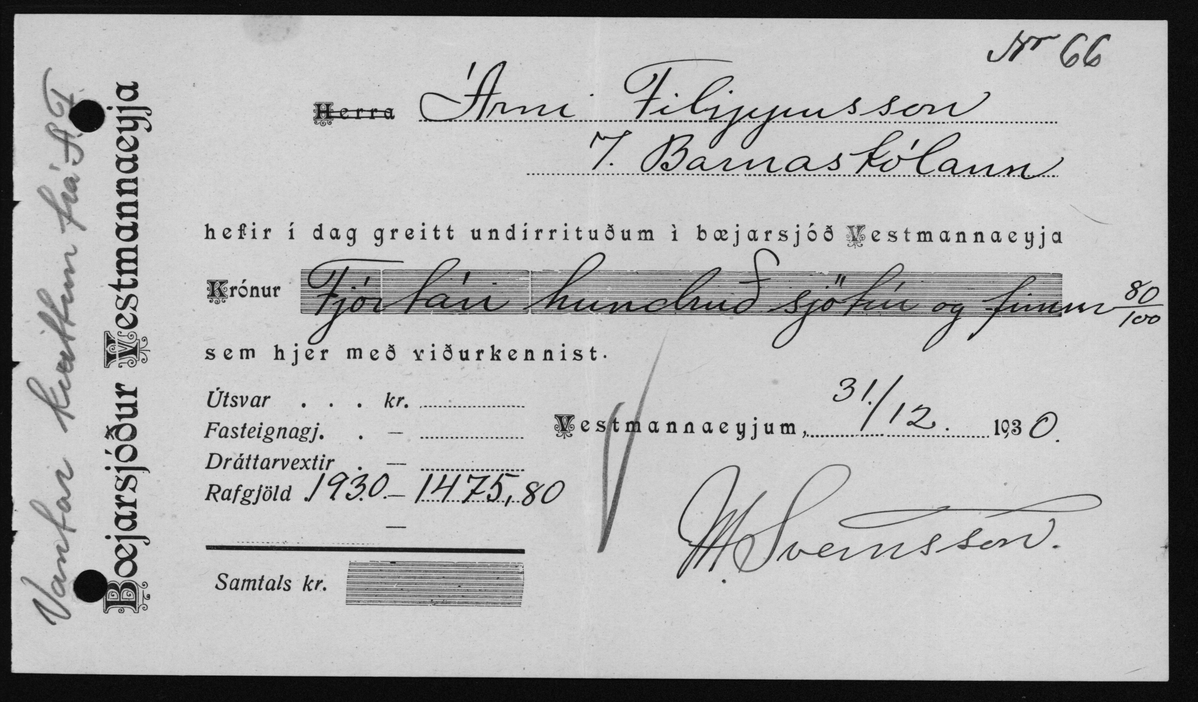 Nr 66
Herra Árni Filippusson
7. Barnaskólann
hefir í dag greitt undirrituðum ì bæjarsjóð Vestmannaeyja
Krónur Fjórtán hundruð sjötíu og fimm 80/100
sem hjer með viðurkennist.
Útsvar . . . kr.
Fasteignagj. . —
Dráttarvextir . —
Rafgjöld 1930 — 1475,80
—
Samtals kr.
Vestmannaeyjum, 31./12. 1930.
M. Sveinsson.
Bæjarsjóður Vestmannaeyja
Vantar kvittun frá Á.F.